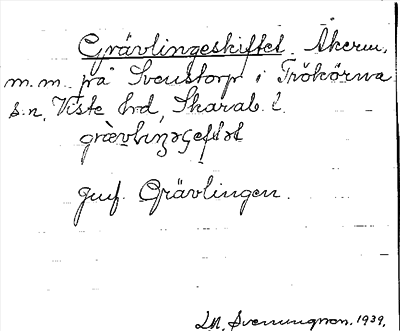 Grävlingeskiftet. Åkerm.
m.m. på Svenstorp i Trökörna
s:n, Viste hd, Skarab. l.
jmf. Grävlingen.
LN. Svenungson. 1939.